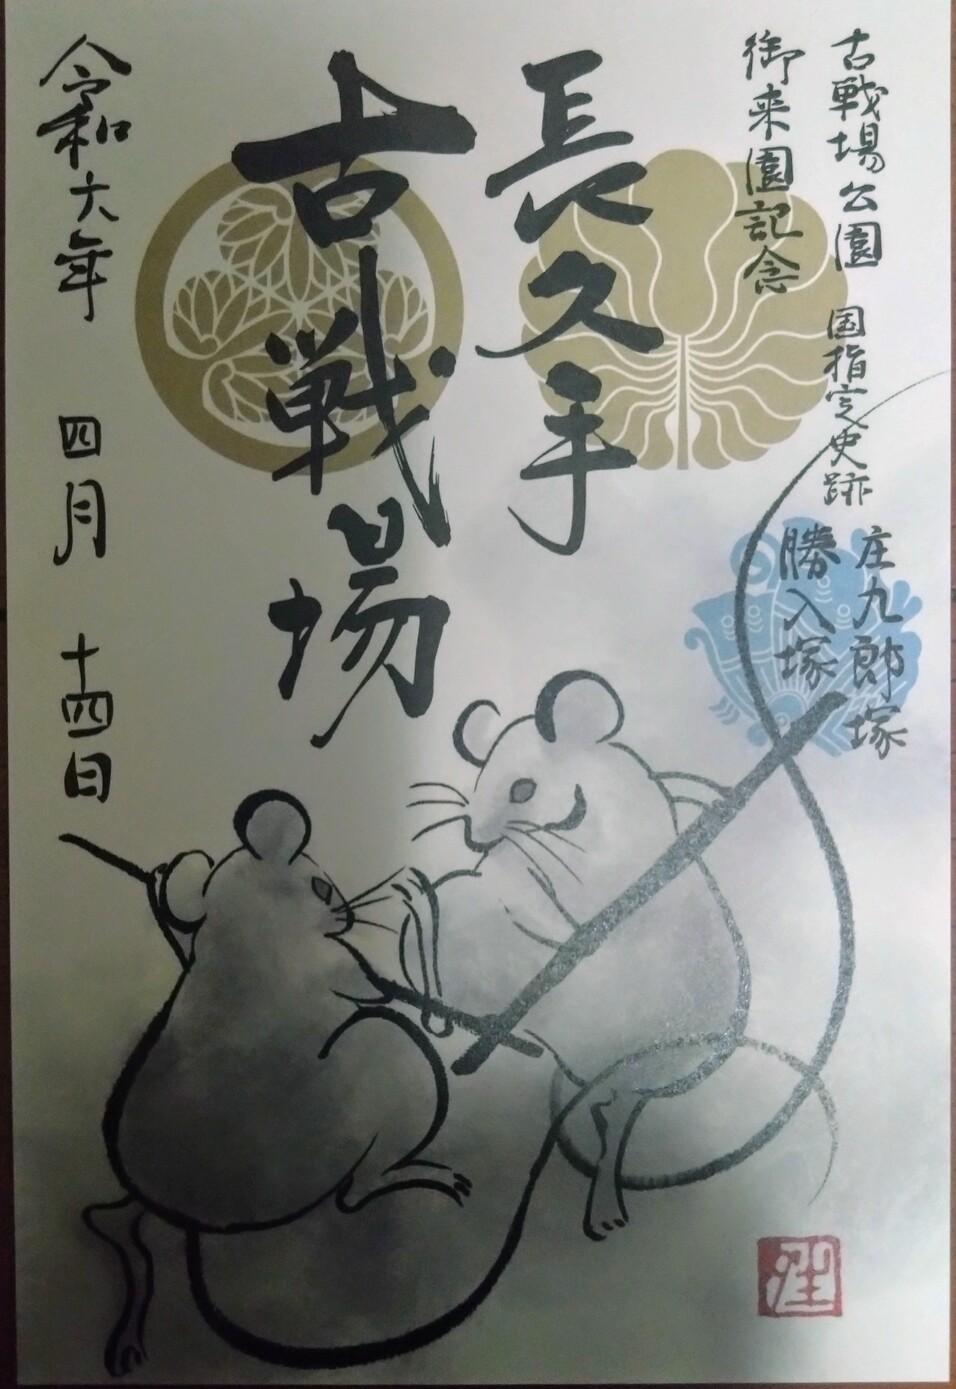 古戦場公園 国指定史跡 庄九郎塚
勝入塚
御来園記念
長久手
古戦場
令和六年 四月 十四日